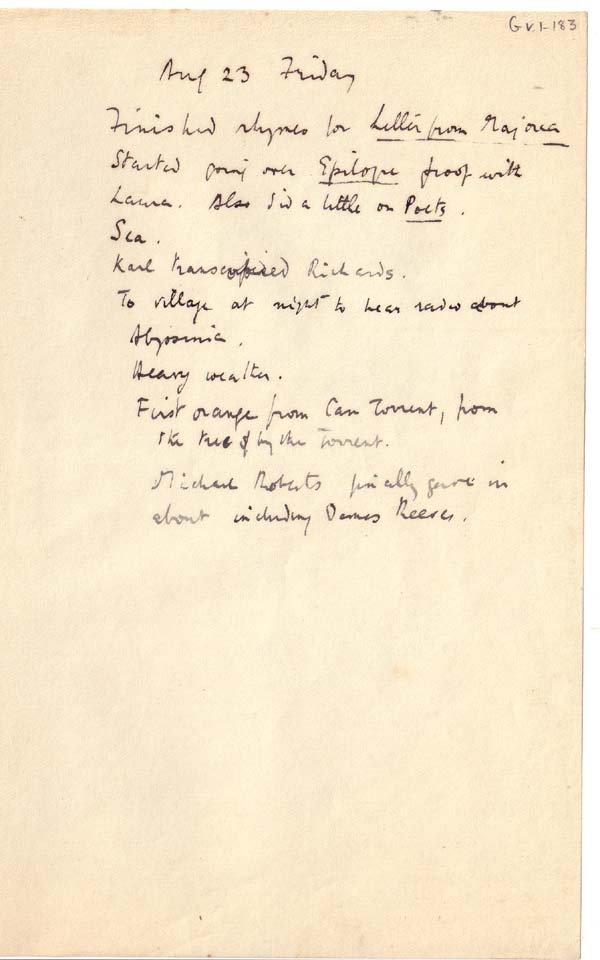 G v.1-183
Aug 23 Friday
Finished rhymes for Letter from Majorca
Started going over Epilogue proof with
Laura. Also did a little on Poets.
Sea.
Karl transcribed Richards.
To village at night to hear radio about
Abyssinia.
Heavy weather.
First orange from Can Torrent, from
the tree by the Torrent.
Michael Roberts finally gave in
about including James Reeves.